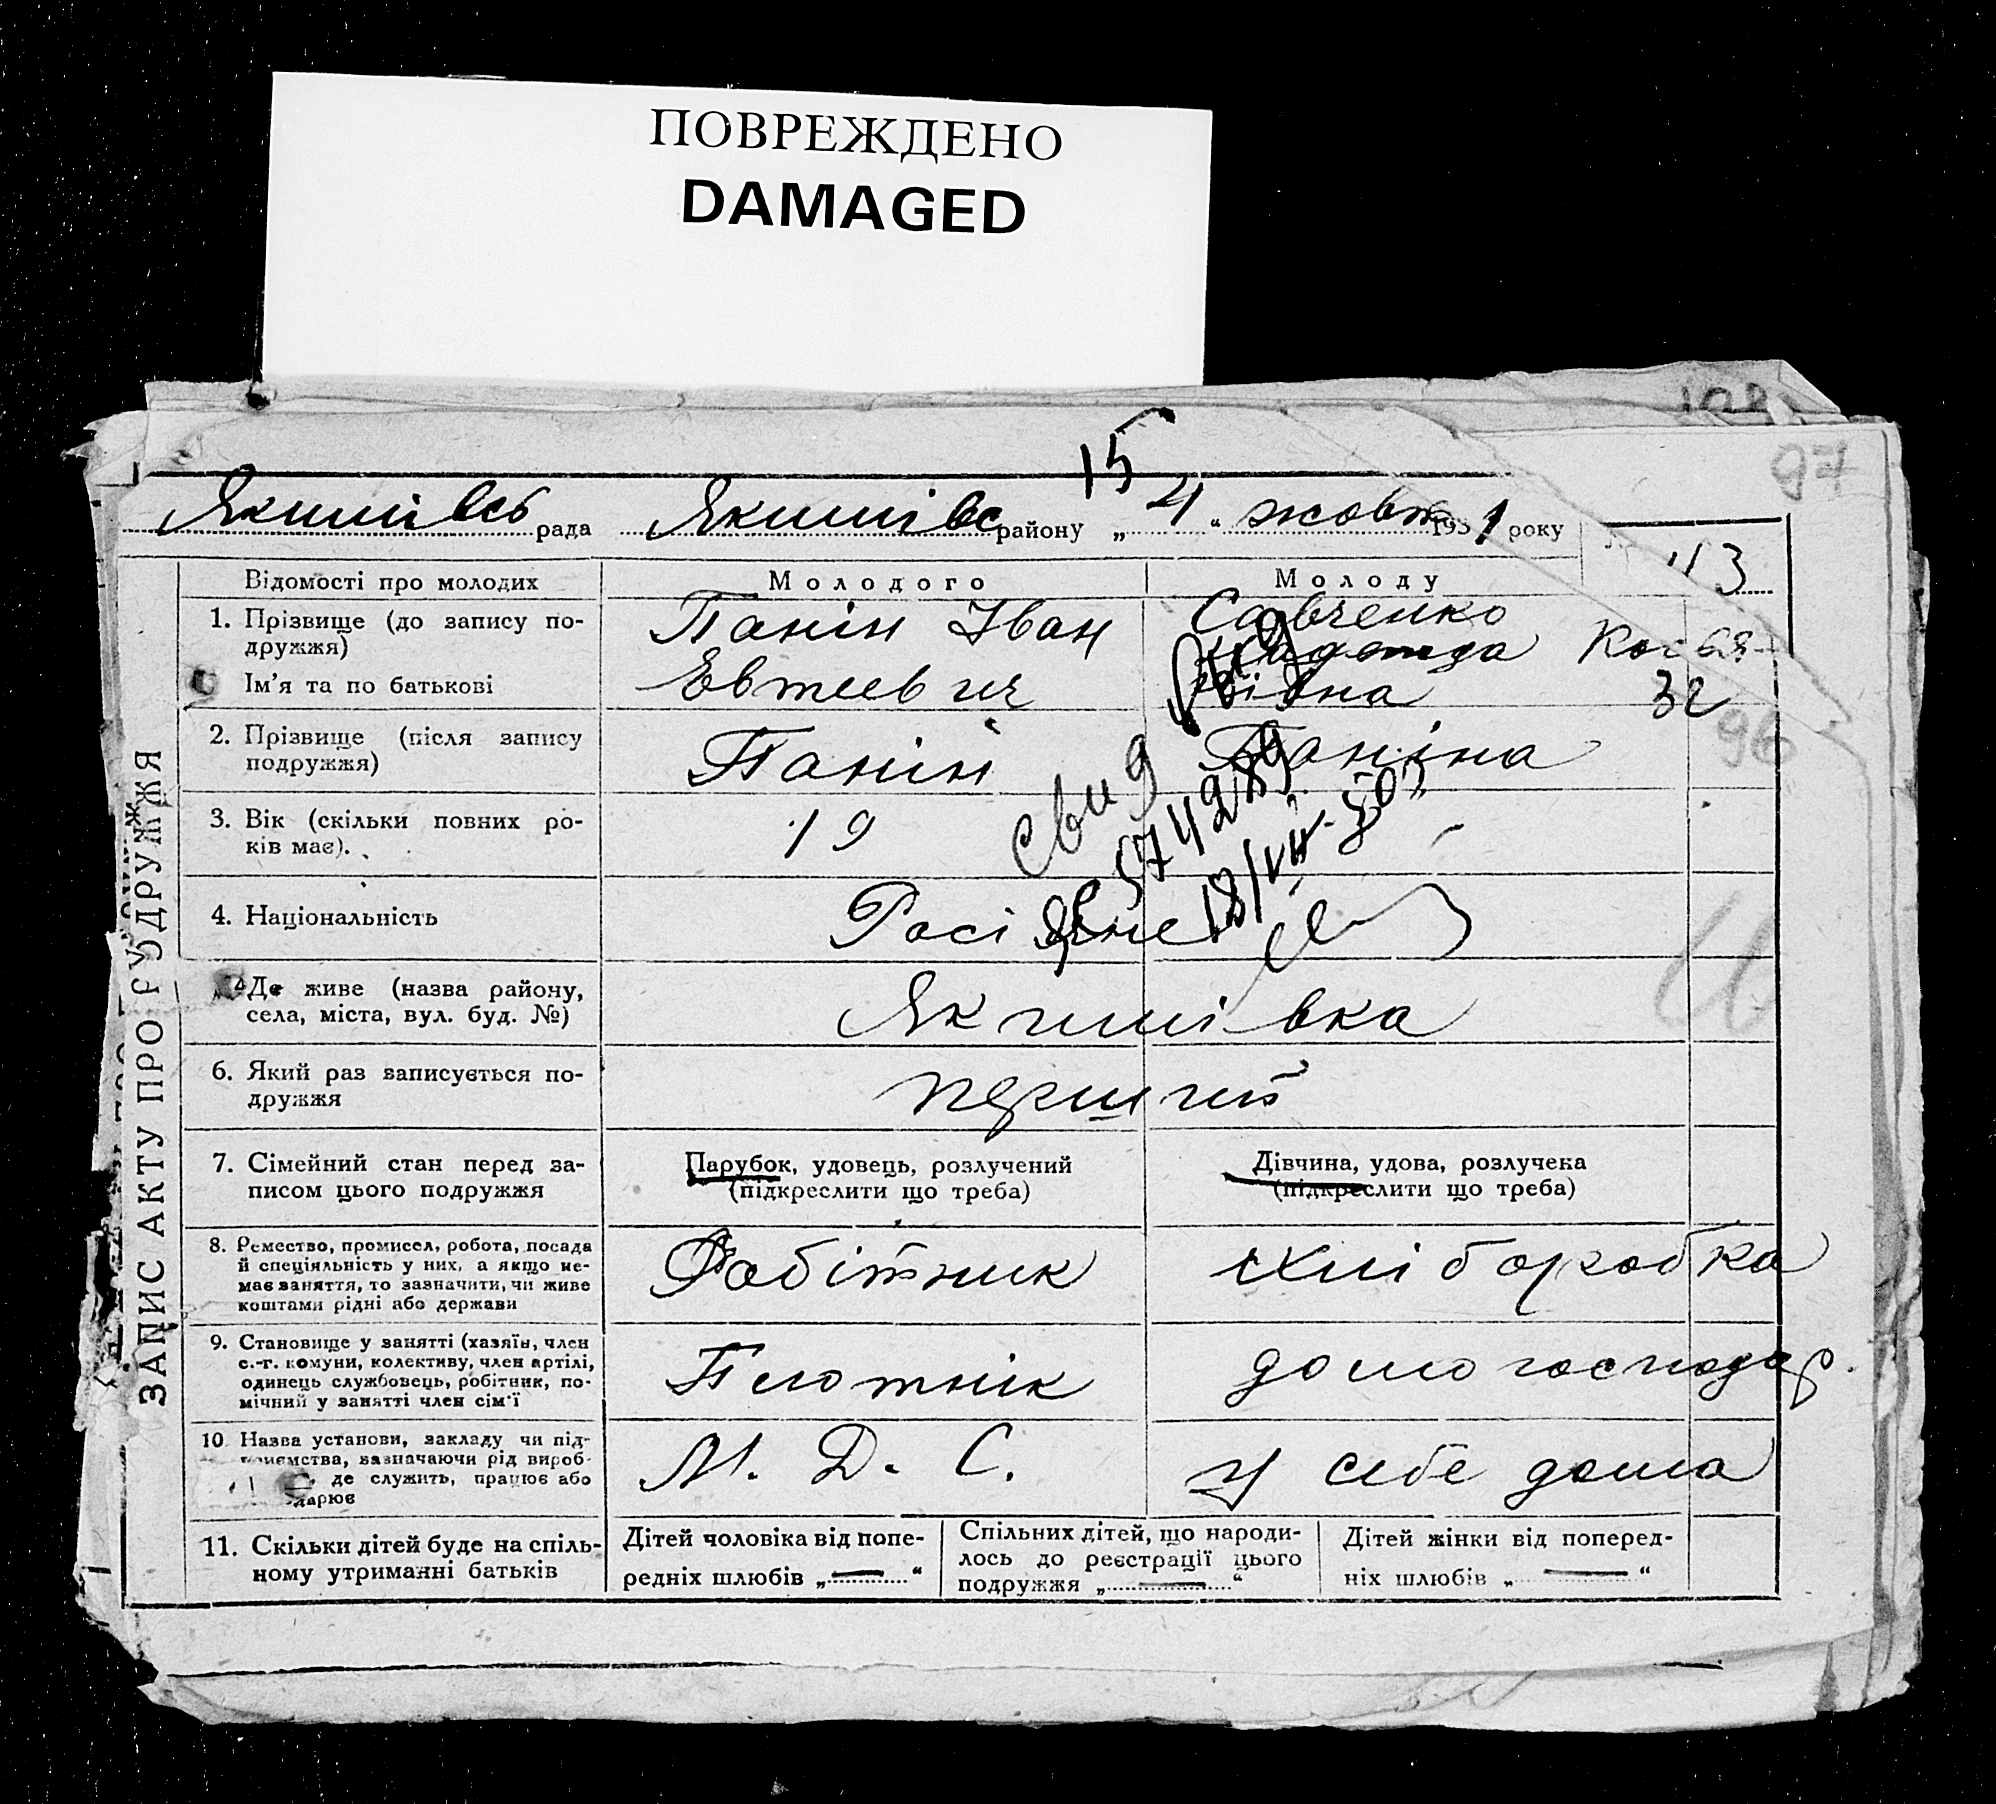 ПОВРЕЖДЕНО
DAMAGED
97
15
Якимівсь рада Якимівс району „ 4 “ жовт 1931 року
43
ЗАПИС АКТУ ПРО ПОДРУЖЖЯ
Відомості про молодих Молодого Молоду
1. Прізвище (до запису по-
дружжя)
Ім'я та по батькові
Панін Іван
Евтеевич
Савченко
Надежда
32
2. Прізвище (після запису
подружжя)
Панін
Паніна
96
3. Вік (скільки повних ро-
ків має).
19
свид
574289
4. Національність
Росіяне
Де живе (назва району,
села, міста, вул. буд. №)
Якимівка
6. Який раз записується по-
дружжя
перший
7. Сімейний стан перед за-
писом цього подружжя
Парубок, удовець, розлучений
(підкреслити що треба)
Дівчина, удова, розлучена
(підкреслити що треба)
8. Ремество, промисел, робота, посада
й спеціяльність у них, а якщо не-
має заняття, то зазначити, чи живе
коштами рідні або держави
Робітник
хліборобка
9. Становище у занятті (хазяїн, член
с.-г. комуни, колективу, член артілі,
одинець службовець, робітник, по-
мічний у занятті член сім'ї
Плотнік
домогосподар.
10 Назва установи, закладу чи під-
приємства, зазначаючи рід вироб-
де служить, працює або
М. Д. С.
у себе дома
11. Скільки дітей буде на спіль-
ному утриманні батьків
Дітей чоловіка від попе-
редніх шлюбів „ — “
Спільних дітей, що народи-
лось до реєстрації цього
подружжя „ — “
Дітей жінки від поперед-
ніх шлюбів „ — “